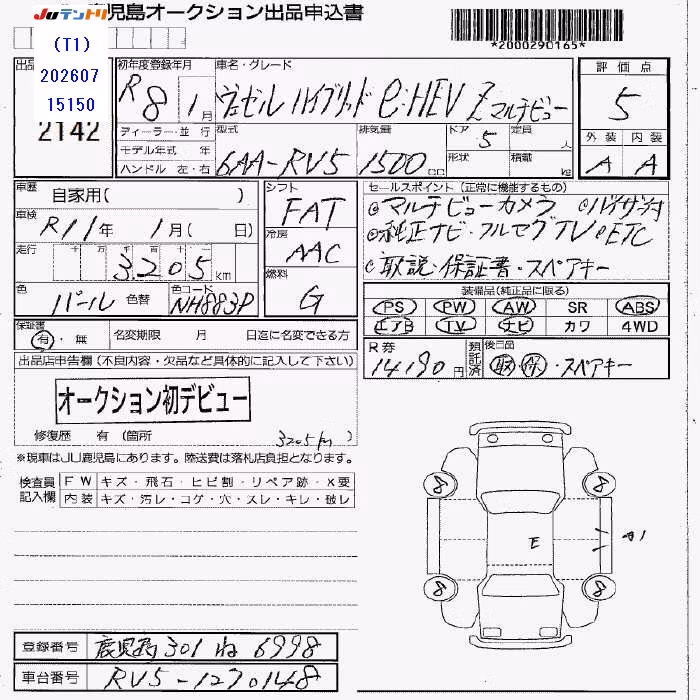 JUテントリ 鹿児島オークション出品申込書
*2000290165*
(T1)
202607
15150
2142
初年度登録年月 R8 1月
車名・グレード ヴェゼル ハイブリッド e:HEV Z マルチビュー
評価点 5
外装 内装
A A
ディーラー・並 行
モデル年式 年
ハンドル 左・右
型式 6AA-RV5
排気量 1500 cc
ドア 5 定員 人
形状 積載 kg
車歴 自家用( )
車検 R11年 1月( 日)
走行 十 万 千 百 十 一
3205 km
色 パール 色替 色コード NH883P
シフト FAT
冷房 AAC
燃料 G
セールスポイント(正常に機能するもの)
◎マルチビューカメラ ◎バイザー付
◎純正ナビ・フルセグTV ◎ETC
◎取説・保証書・スペアキー
装備品(純正品に限る)
PS PW AW SR ABS
エアB TV ナビ カワ 4WD
保証書 有・無 名変期限 月 日迄に名変できる方
R券 14190円 預託済 後日品 取・保・スペアキー
出品店申告欄(不良内容・欠品など具体的に記入して下さい)
オークション初デビュー
修復歴 有(箇所 3205km )
※現車はJU鹿児島にあります。陸送費は落札店負担となります。
検査員記入欄
FW キズ・飛石・ヒビ割・リペア跡・X要
内装 キズ・汚レ・コゲ・穴・スレ・キレ・破レ
8 8
E A1
8 8
登録番号 鹿児島 301 ね 6998
車台番号 RV5-1270148